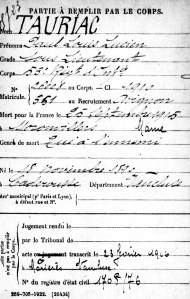 PARTIE À REMPLIR PAR LE CORPS.
TAURIAC
Nom
Prénoms Paul Louis Lucien
Grade Sous Lieutenant
Corps 55e Régt d'Infie
N° au Corps. — Cl. 1910
Matricule. 561 au Recrutement Avignon
Mort pour la France le 25 Septembre 1915
à Marne
Genre de mort Tué à l'ennemi
Né le 18 novembre
à Département Vaucluse
Arr' municipal (p' Paris et Lyon),
à défaut rue et N°.
Jugement rendu le
par le Tribunal de
acte ou jugement transcrit le 23 février 1916
à Vaucluse
N° du registre d'état civil